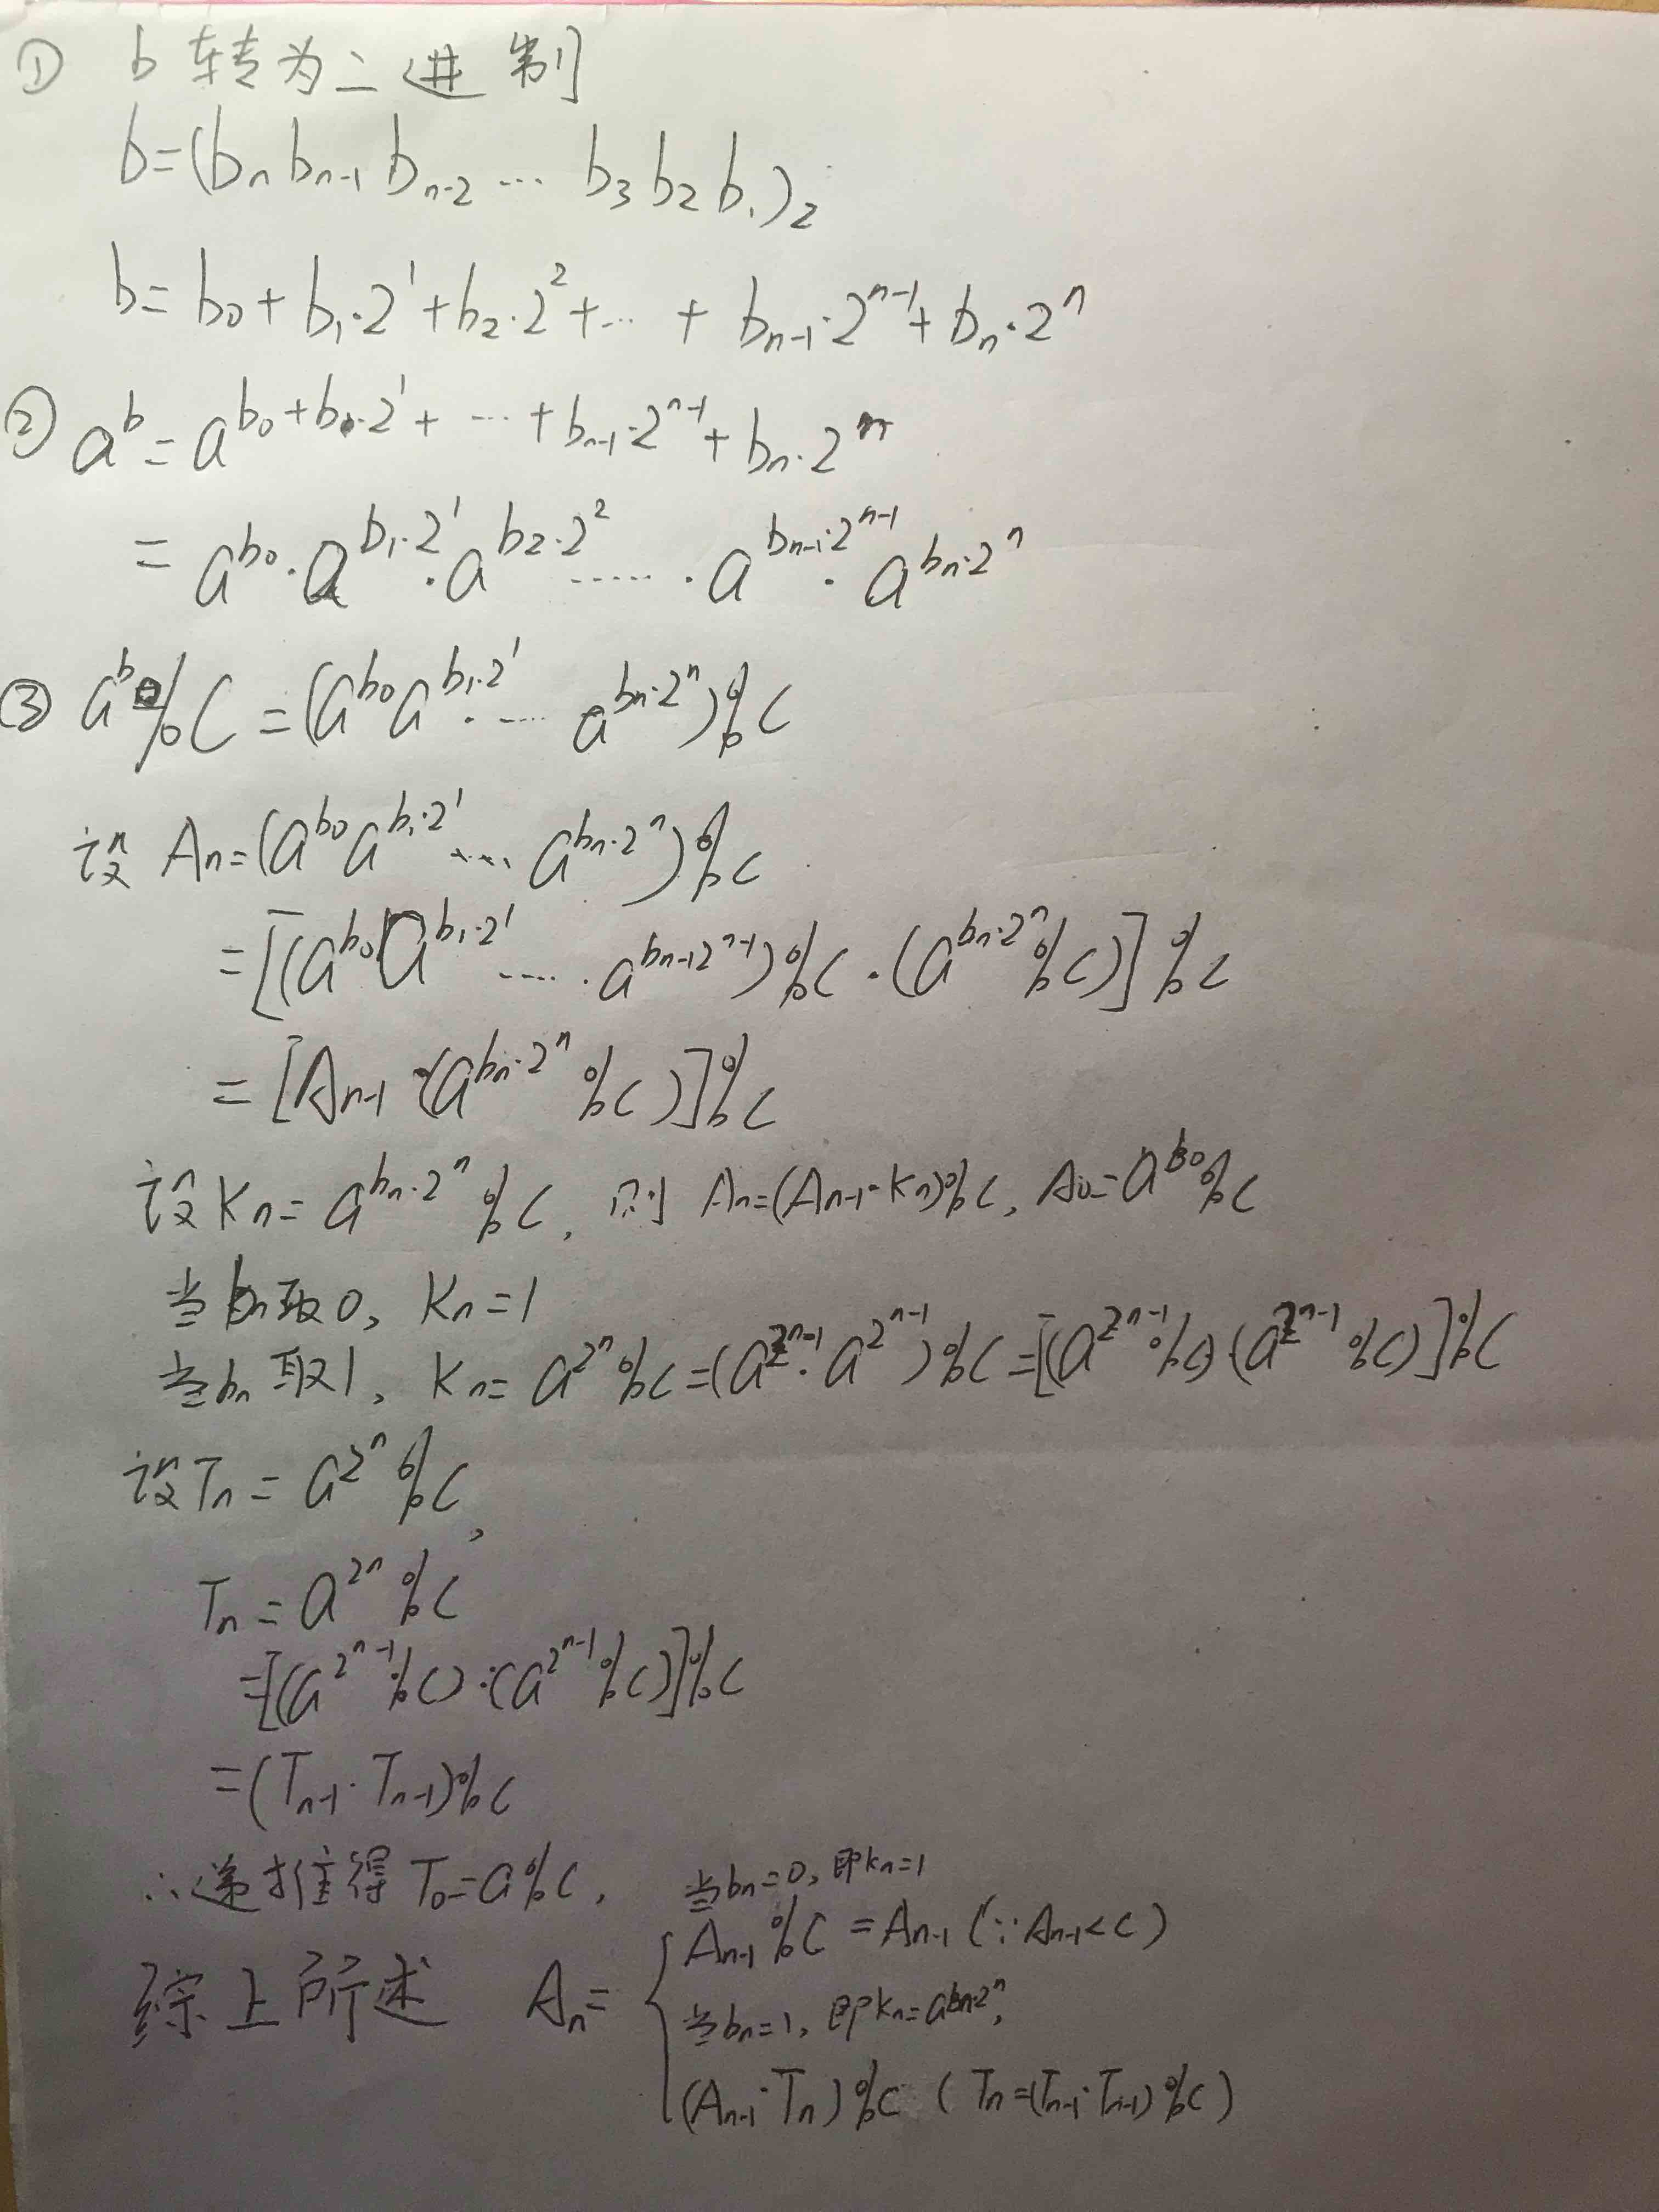 ① b 转为二进制
b=(bₙ bₙ₋₁ bₙ₋₂ … b₃ b₂ b₁)₂
b= b₀ + b₁·2¹ + b₂·2² + … + bₙ₋₁·2ⁿ⁻¹ + bₙ·2ⁿ
② a^b = a^(b₀+b₁·2¹+ … +bₙ₋₁·2ⁿ⁻¹+bₙ·2ⁿ)
= a^(b₀)·a^(b₁·2¹)·a^(b₂·2²) …… ·a^(bₙ₋₁·2ⁿ⁻¹)·a^(bₙ·2ⁿ)
③ a^b%C = (a^(b₀)a^(b₁·2¹)·… a^(bₙ·2ⁿ))%C
设 Aₙ=(a^(b₀)a^(b₁·2¹) …. a^(bₙ·2ⁿ))%C
=[(a^(b₀)a^(b₁·2¹) ….·a^(bₙ₋₁2ⁿ⁻¹))%C·(a^(bₙ·2ⁿ)%C)]%C
= [Aₙ₋₁·(a^(bₙ·2ⁿ)%C)]%C
设Kₙ= a^(bₙ·2ⁿ)%C, 则 Aₙ=(Aₙ₋₁·Kₙ)%C, A₀=a^(b₀)%C
当bₙ取0, Kₙ=1
当bₙ取1, Kₙ= a^(2ⁿ)%C=(a^(2ⁿ⁻¹)·a^(2ⁿ⁻¹))%C=[(a^(2ⁿ⁻¹)%C)·(a^(2ⁿ⁻¹)%C)]%C
设Tₙ= a^(2ⁿ)%C,
Tₙ = a^(2ⁿ)%C
=[(a^(2ⁿ⁻¹)%C)·(a^(2ⁿ⁻¹)%C)]%C
=(Tₙ₋₁·Tₙ₋₁)%C
∴递推得 T₀=a%C,
当bₙ=0, 即Kₙ=1
综上所述 Aₙ= { Aₙ₋₁%C = Aₙ₋₁ (∵Aₙ₋₁<C)
当bₙ=1, 即Kₙ=a^(bₙ·2ⁿ),
(Aₙ₋₁·Tₙ)%C ( Tₙ=(Tₙ₋₁·Tₙ₋₁)%C)